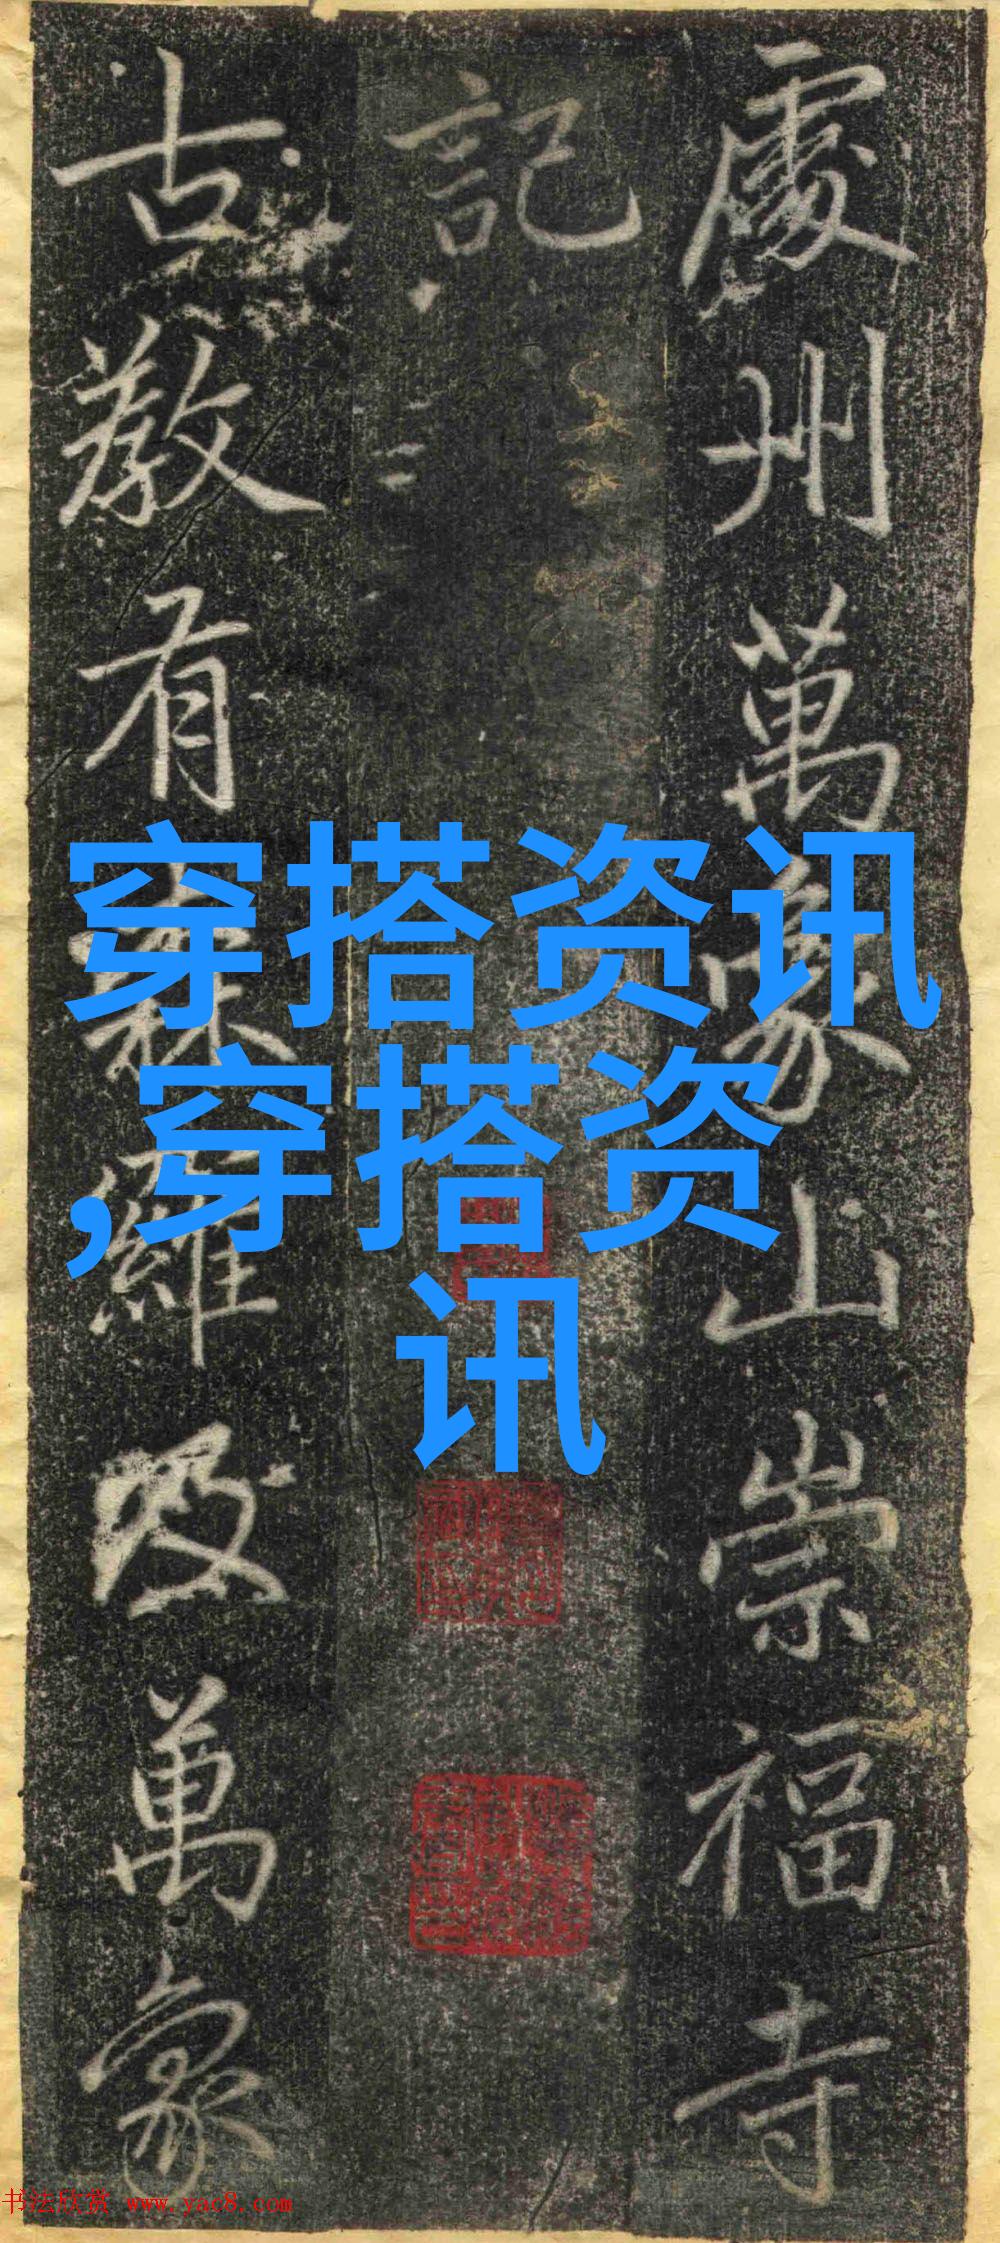 處州萬象山崇福寺
記
古教有森羅及萬象
穿搭资讯
,穿搭资
讯
书法欣赏 www.yac8.com